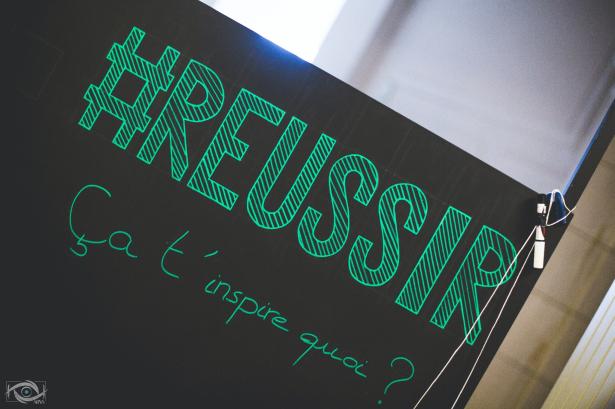 #REUSSIR
Ça t'inspire quoi ?